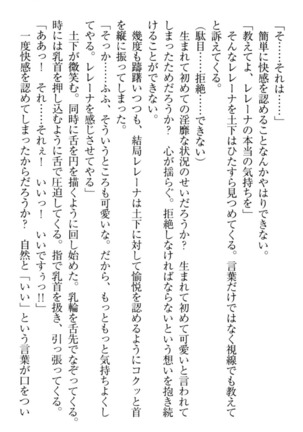 「そ……それは……」
簡単に快感を認めることなんかやはりできない。
「教えてよ、レレーナの本当の気持ちを」
そんなレレーナを土下はひたすら見つめてくる。言葉だけではなく視線でも教えて
と訴えてくる。
（駄目……拒絶……できない）
生まれて初めての淫靡な状況のせいだろうか？　生まれて初めて可愛いと言われて
しまったためだろうか？　心が揺らぐ。拒絶しなければならないという想いを抱き続
けることができない。
幾度も躊躇いつつも、結局レレーナは土下に対して愉悦を認めるようにコクッと首
を縦に振ってしまった。
「そっか……ふふ、そういうところも可愛いな。だから、もっともっと気持ちよくし
てやる。レレーナを感じさせてやる」
土下が微笑む。同時に舌を円を描くように回し始めた。乳輪を舌先でなぞってくる。
時には乳首を押し込むように舌で圧迫してくる。指で乳首を扱き、引っ張ってくる。
「ああっ！　それ……それぇ！　いいっ！　いいですぅっ!!」
一度快感を認めてしまったからだろうか？　自然と「いい」という言葉が口をつい